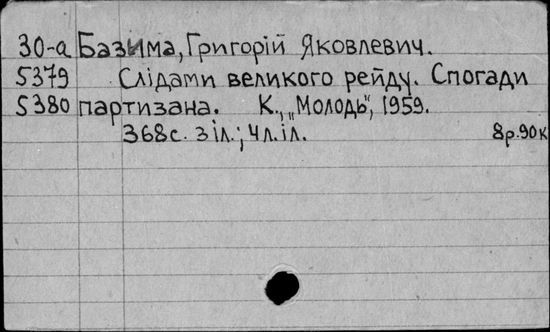 30-а Базима, Григорій Яковлевич.
5379 Слідами великого рейду. Спогади
5380 партизана. К., „Молодь", 1959.
368с. з іл.; 4л.іл. 8р.90к